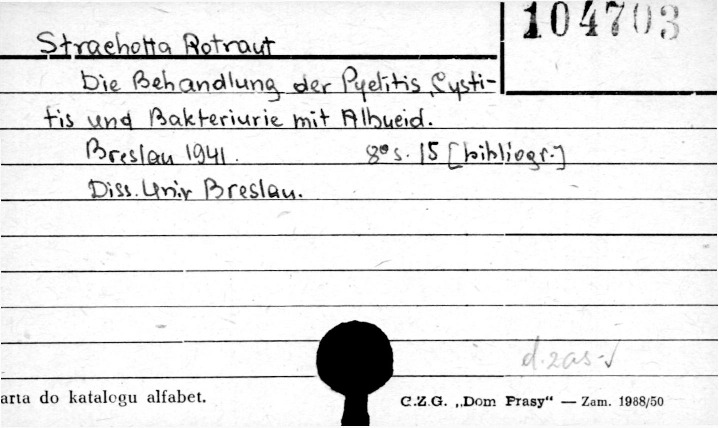 104703
Strachotta Rotraut
Die Behandlung der Pyelitis, Cysti-
tis und Bakteriurie mit Albucid.
Breslau 1941. 8° s. 15 [bibliogr.]
Diss. Univ Breslau.
d. zas.
arta do katalogu alfabet.
C.Z.G. „Dom Prasy“ — Zam. 1988/50